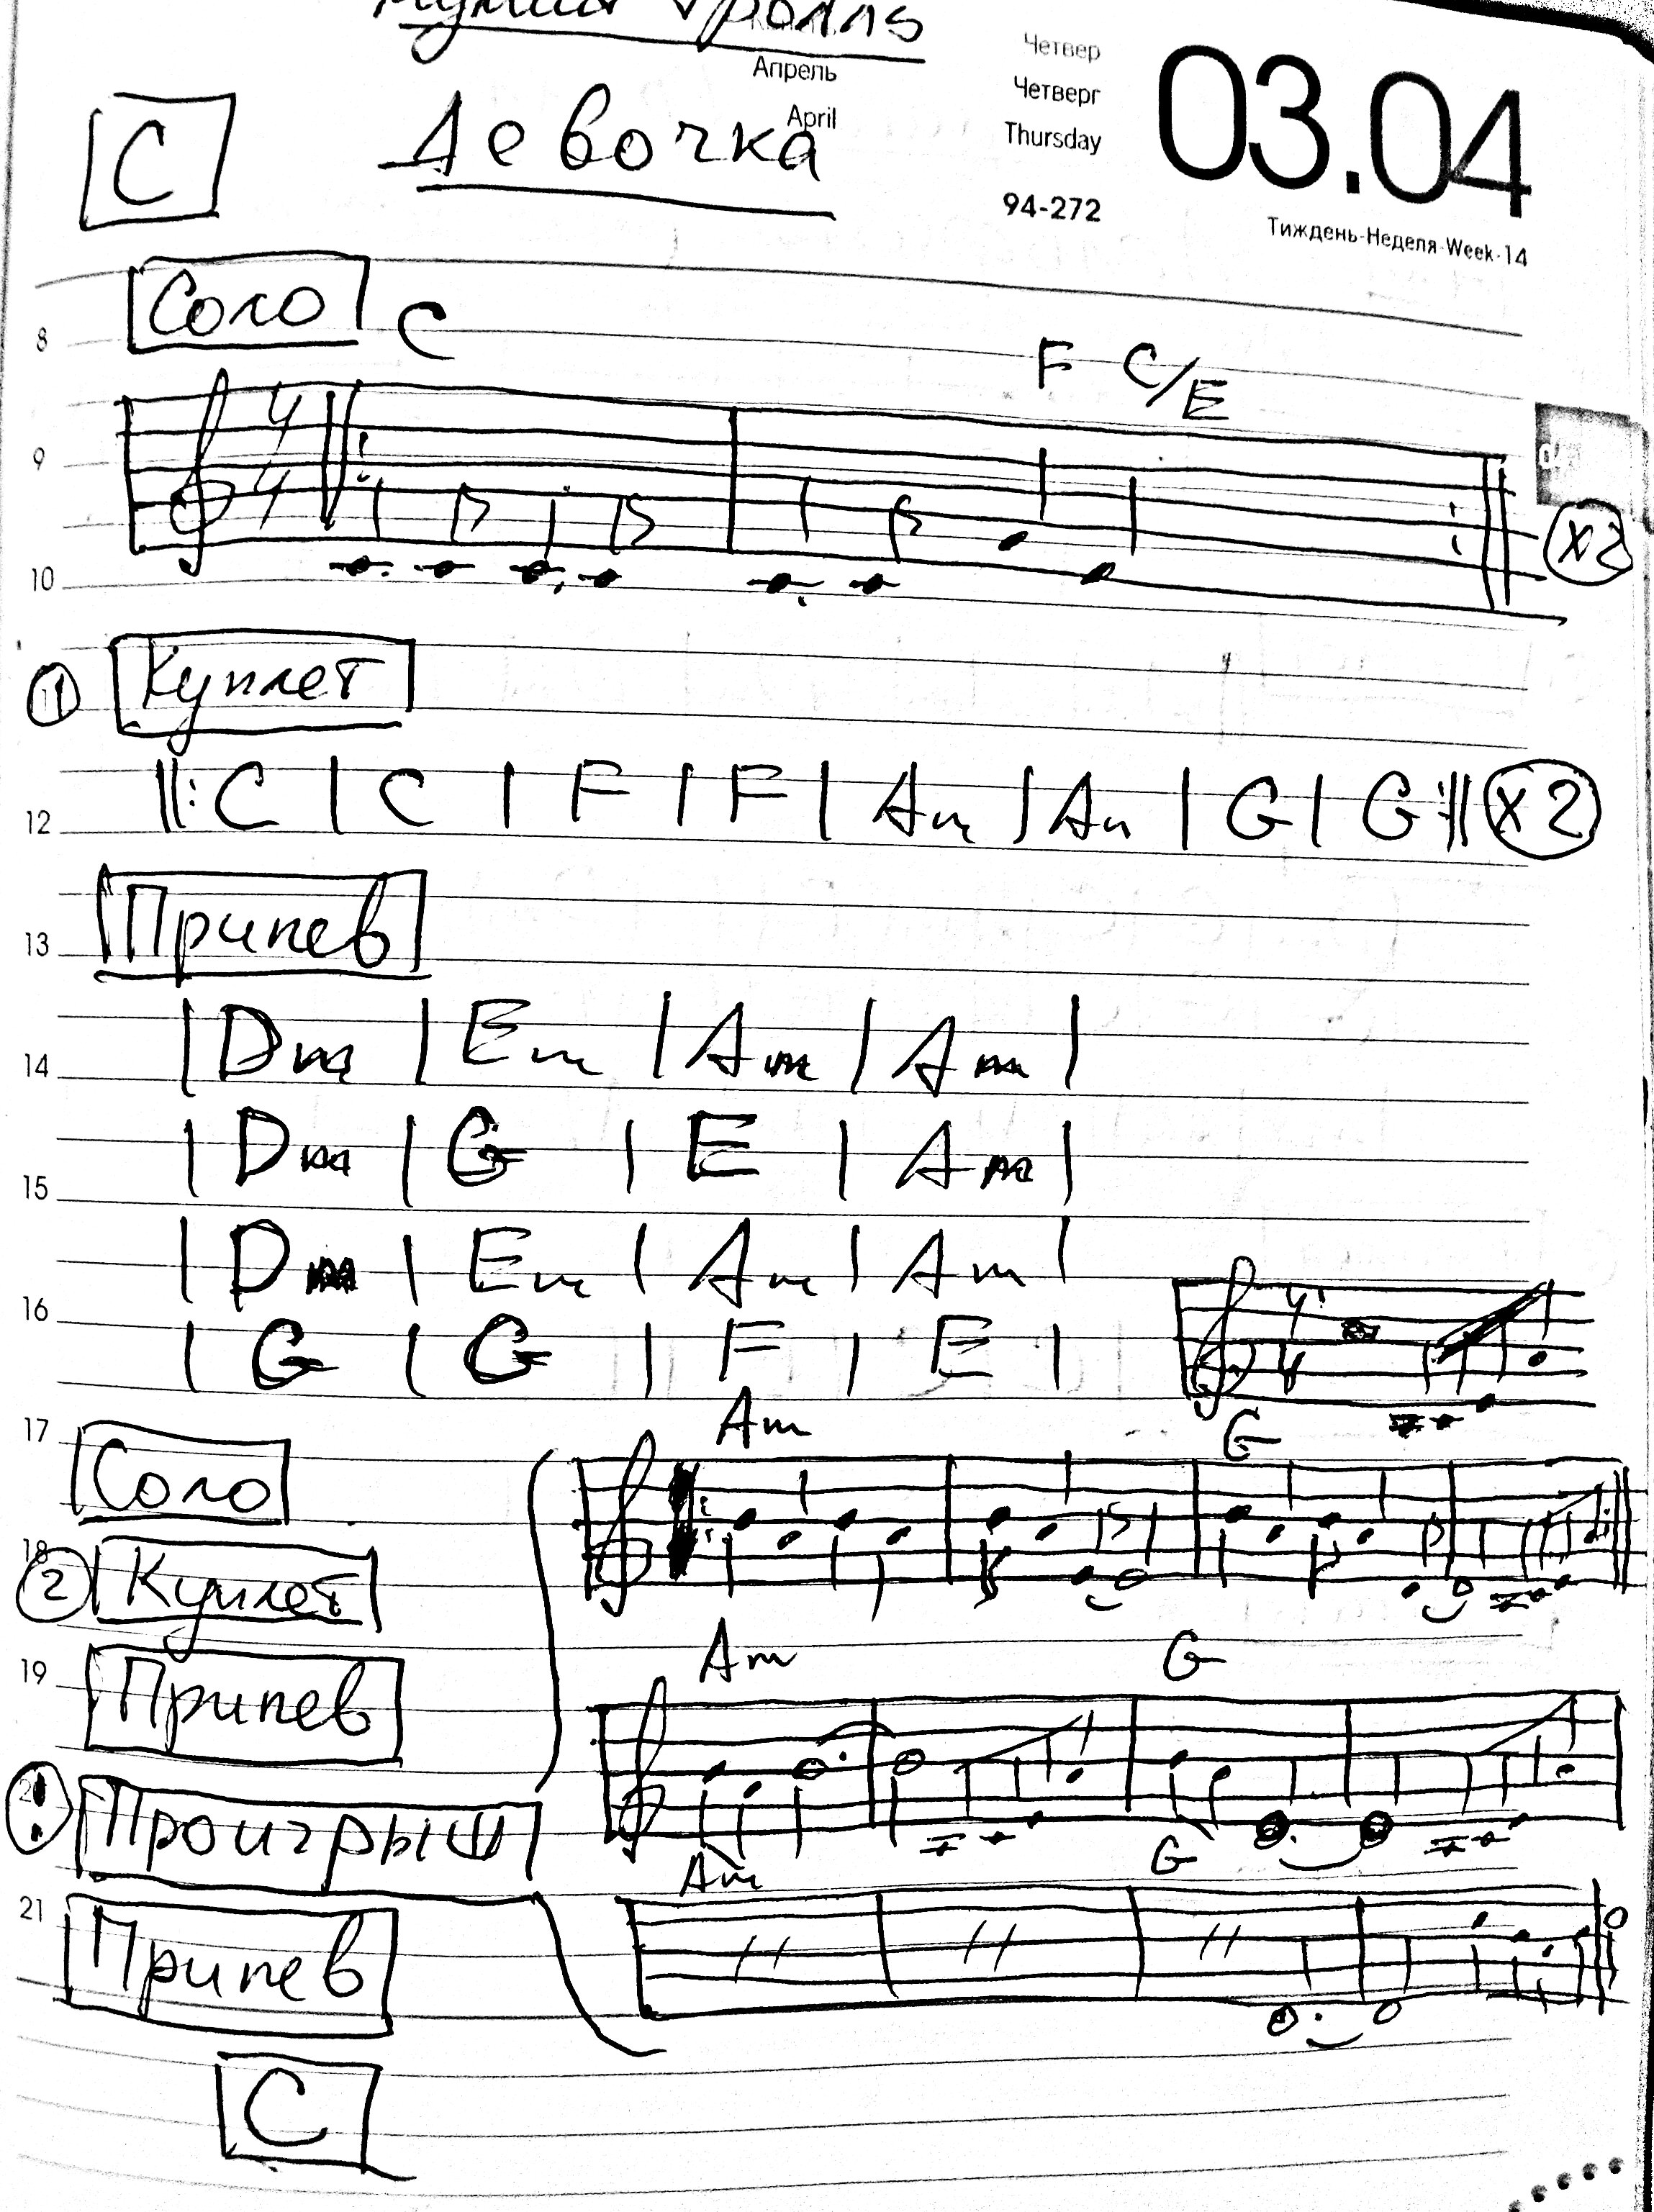 Мумий Тролль
Апрель
April
Четвер
Четверг
Thursday
94-272
03.04
Тиждень-Неделя-Week-14
C
Девочка
Соло C
F C/E
8
9
4
4
x2
10
11 Куплет
12 ||: C | C | F | F | Am | Am | G | G :|| x2
13 Припев
14 | Dm | Em | Am | Am |
15 | Dm | G | E | Am |
16 | Dm | Em | Am | Am |
| G | G | F | E |
4
4
17 Соло
Am G
18
2 Куплет
Am G
19 Припев
Проигрыш
Am G
21 Припев
C